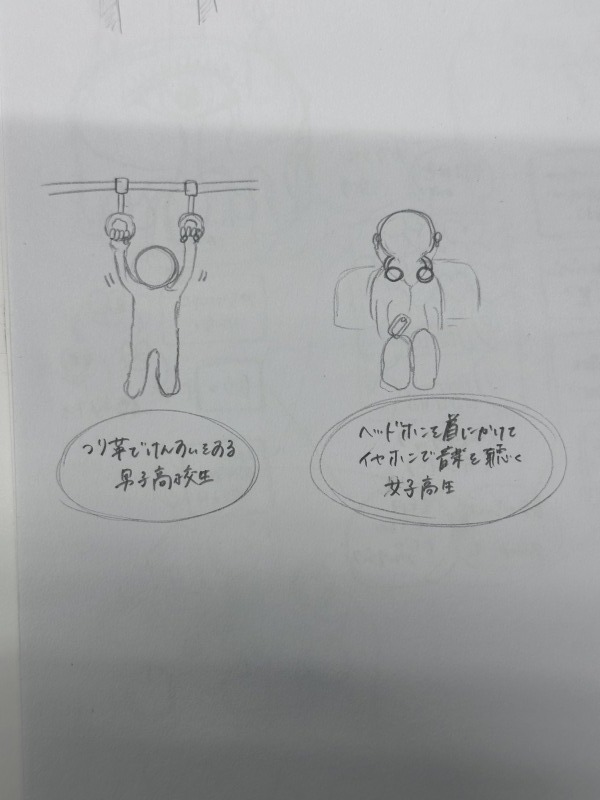 つり革でけんすいをする
男子高校生
ヘッドホンを首にかけて
イヤホンで音楽を聴く
女子高生